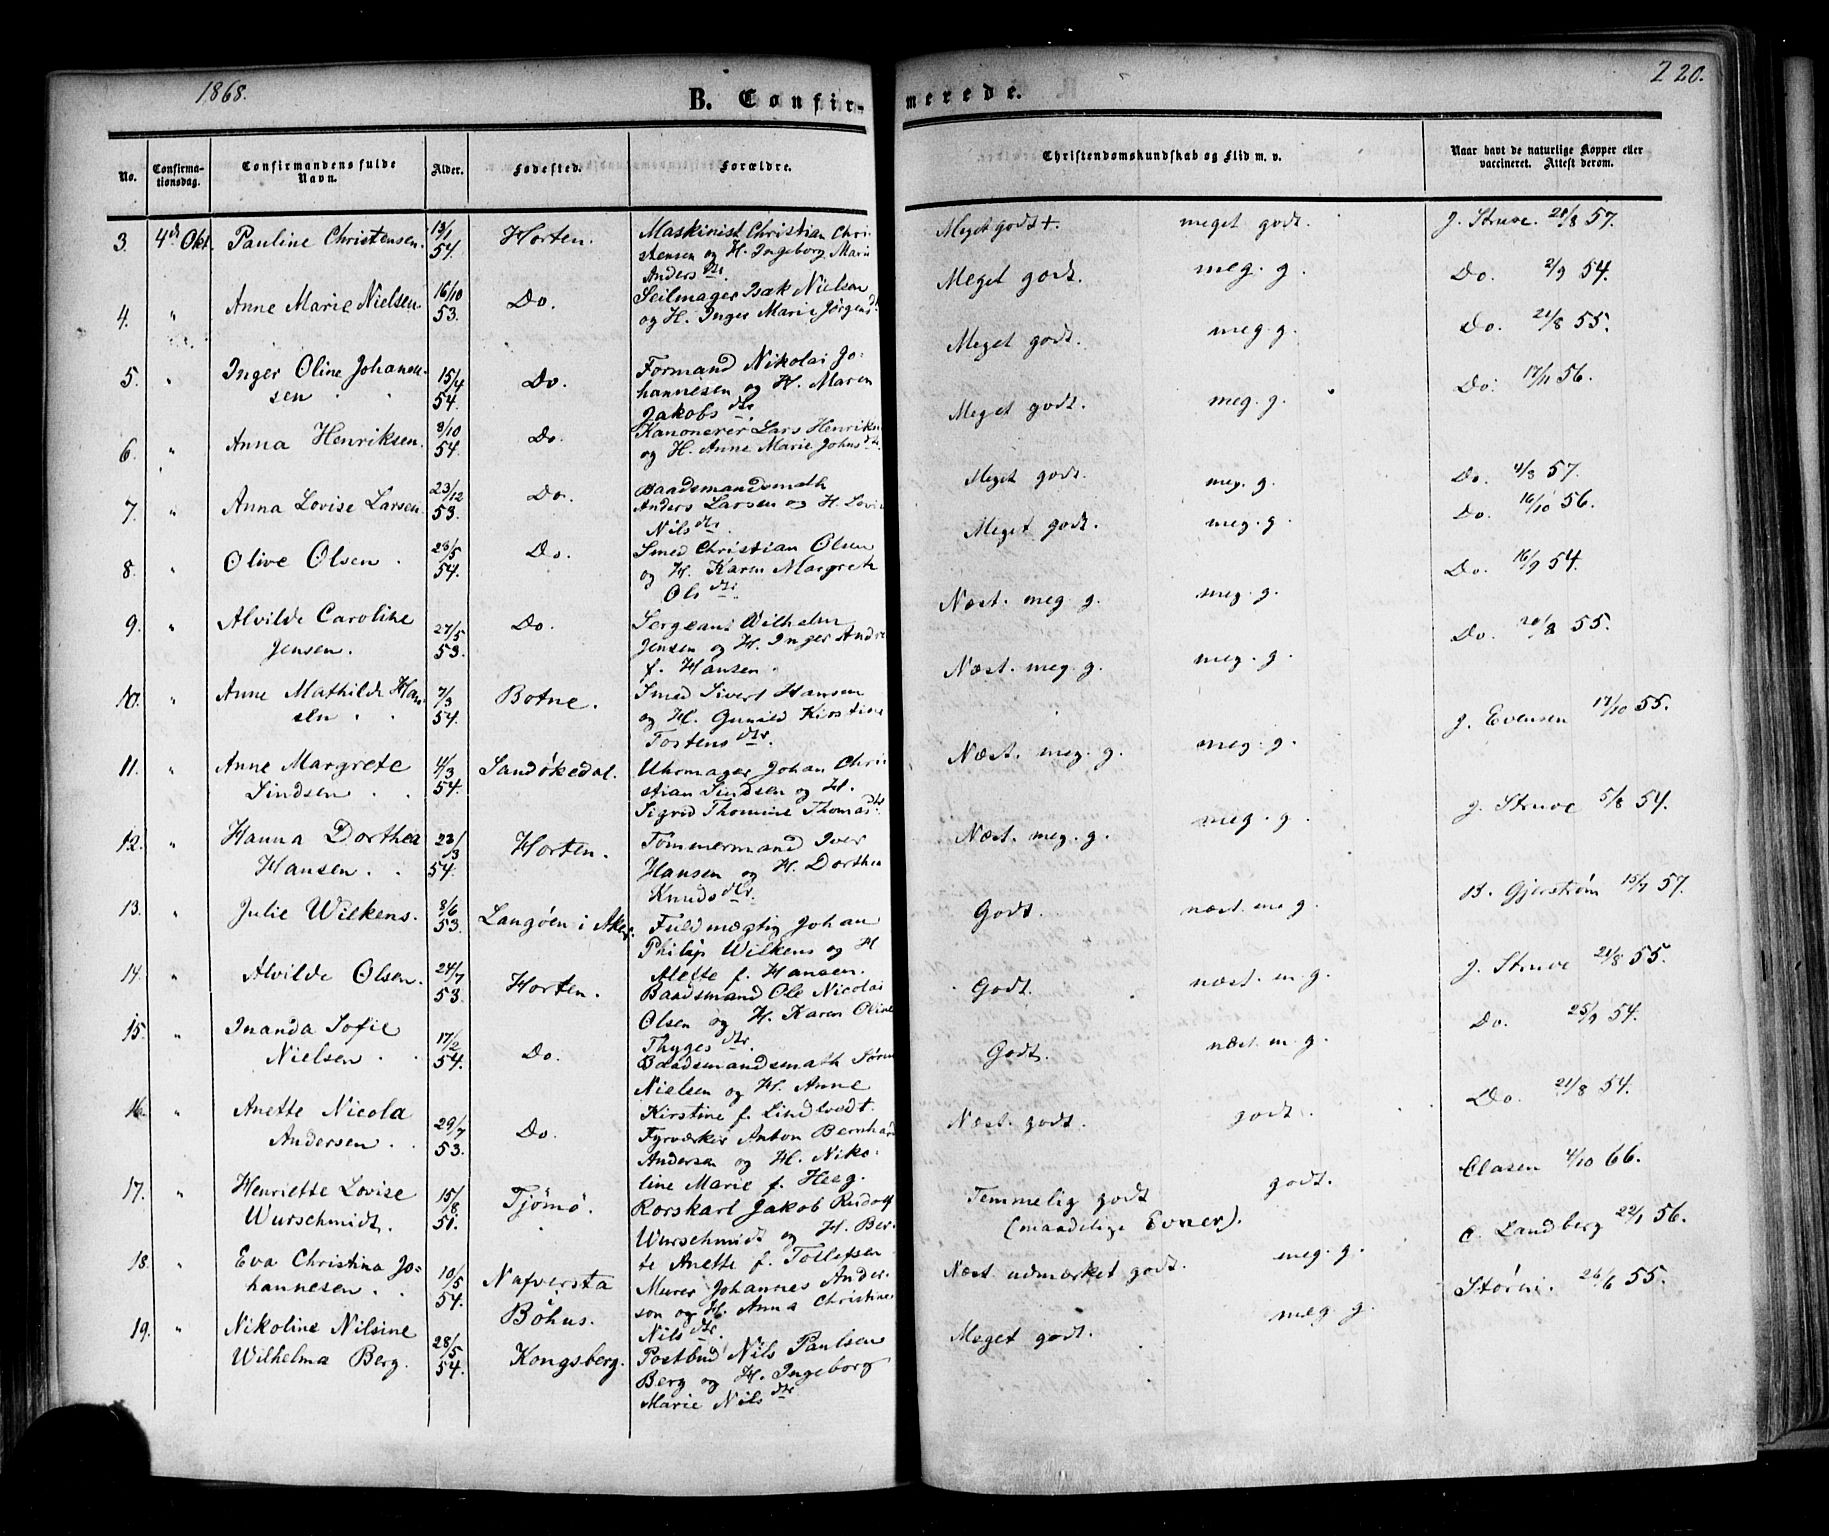 1868.
B. Confirmerede.
220.
No.
Confirmationsdag.
Confirmandens fulde Navn.
Alder.
Fødested.
Forældre.
Christendomskundskab og Flid m. v.
Naar havt de naturlige Kopper eller vaccineret. Attest derom.
3. 4de Okt. Pauline Christensen. 13/1 54. Horten. Maskinist Christian Christensen og H. Ingeborg Marie Anders dtr. Meget godt +. meget godt. J. Struve 28/8 57.
4. " Anne Marie Nielsen. 16/10 53. Do. Seilmager Isak Nielsen og H. Inger Marie Jørgens dt Meget godt. meg. g. Do. 2/9 54.
5. " Inger Oline Johannesen 15/4 54. Do. Formand Nikolai Johannesen og H. Maren Jakobs dtr Meget godt. meg. g. Do. 21/8 55.
6. " Anna Henriksen. 8/10 54. Do. Kanonerer Lars Henriksn og H. Anne Marie Johns dtr. Meget godt. meg. g. Do. 17/11 56.
7. " Anna Lovise Larsen. 23/12 53. Do. Baadsmandsmath Anders Larsen og H. Lovise Nils dtr Meget godt. meg. g. Do. 4/8 57.
8. " Olive Olsen. 28/5 54. Do. Smed Christian Olsen og H. Karen Margrete Ols dtr. Meget godt. meg. g. Do. 16/10 56.
9. " Alvilde Caroline Jensen. 27/5 53. Do. Sergeant Wilhelm Jensen og H. Inger Andre f. Hansen. Næst. meg. g. meg. g. Do. 16/9 54.
10. " Anne Mathilde Hansen. 7/3 54. Botne. Smed Sivert Hansen og H. Gunild Kirstine Tostens dtr. Næst. meg. g. meg. g. Do. 20/8 55.
11. " Anne Margrete Lindsen. 4/3 54. Sandøkedal. Uhrmager Johan Christian Lindsen og H. Sigrid Thomine Thomas dt. Næst. meg. g. meg. g. J. Evensen 17/10 55.
12. " Hanna Dorthea Hansen. 23/3 54. Horten. Tømmermand Iver Hansen og H. Dorthea Knuds dtr. Næst. meg. g. meg. g. J. Struve 5/8 54.
13. " Julie Wilkens. 8/6 53. Langøen i Aker. Fuldmægtig Johan Philip Wilkens og H Alette f. Hansen. Godt. næst. me g. B. Gjerstrøm 15/7 57.
14. " Alvilde Olsen. 24/7 53. Horten. Baadsmand Ole Nicolai Olsen og H. Karen Oline Thyges dtr. Godt. næst. m. g. J. Struve 21/8 55.
15. " Inanda Sofie Nielsen. 17/2 54. Do. Baadsmandsmath Søren Nielsen og H. Anne Kirstine f. Lindtvedt. Godt. næst. m. g. Do. 25/9 54.
16. " Anette Nicola Andersen. 29/7 53. Do. Fyrværker Anton Bernhard Andersen og H. Nikoline Marie f. Heeg. Næst. godt. godt. Do. 21/8 54.
17. " Henriette Lovise Wurschmidt. 15/8 51. Tjømø. Rorskarl Jakob Rudolf Wurschmidt og H. Berte Anette f. Tollefsen Temmelig godt (maadelige Evner). godt. Clasen 4/10 66.
18. " Eva Christina Johannesen. 10/5 54. Nafversta Bohus. Murer Johannes Anderson og H. Anna Christine Nils dtr. Næst. udmærket godt. meg. g. C. Landberg 22/1 56.
19. " Nikoline Nilsine Wilhelma Berg. 28/5 54. Kongsberg. Postbud Nils Paulsen Berg og H. Ingeborg Marie Nils dtr Meget godt. meg g. Støren. 26/6 55.